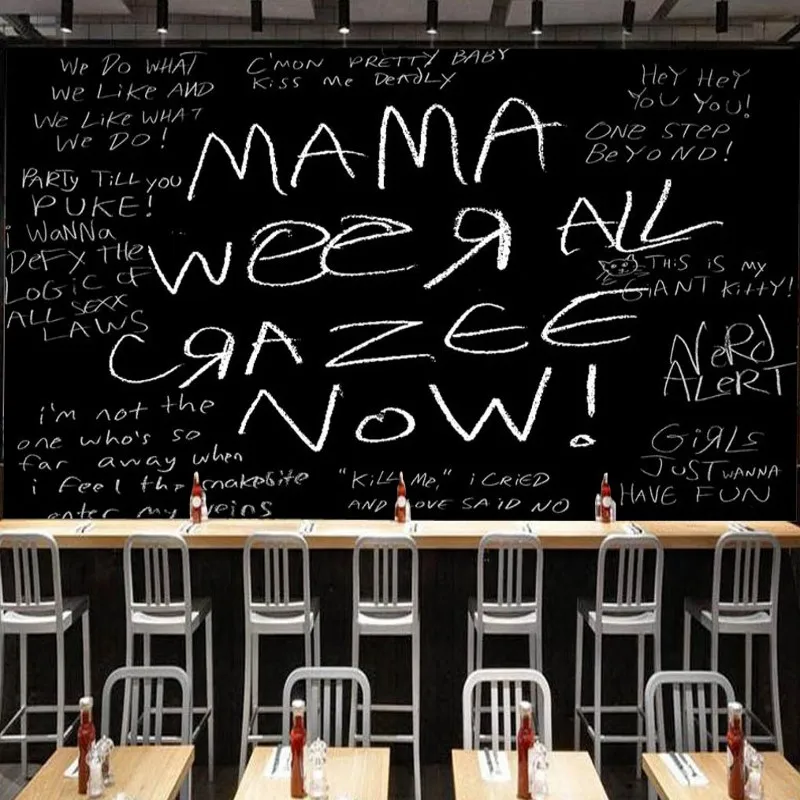 We Do WHAT
We Like AND
We Like WHAT
We DO!
C'MON PRETTY BABY
Kiss Me DeaDLY
HeY HeY
You You!
ONE STEP
BeYOND!
MAMA
WeeR ALL
CRAZEE
NoW!
PARTY TiLL you
PUKE!
i WaNNa
DeFY THe
LOGiC oF
ALL SEXX
LAWS
THiS iS MY
GiANT KiTTY!
NeRD
ALERT
i'm not the
one who's so
far away when
i feel the snakebite
enter my veins
"KiLL Me," i CRiED
AND LOVE SAiD NO
GiRLS
JUST WANNA
HAVE FUN